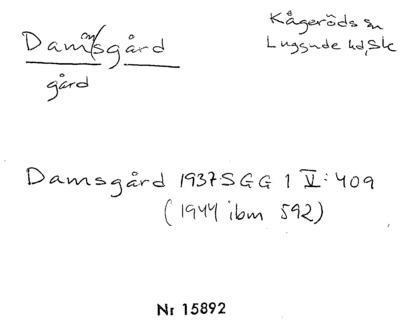 Damm/sgård
gård
Kågeröds sn
Luggude hd, Sk
Damsgård 1937 SGG 1 V: 409
(1944 ibm 592)
Nr 15892